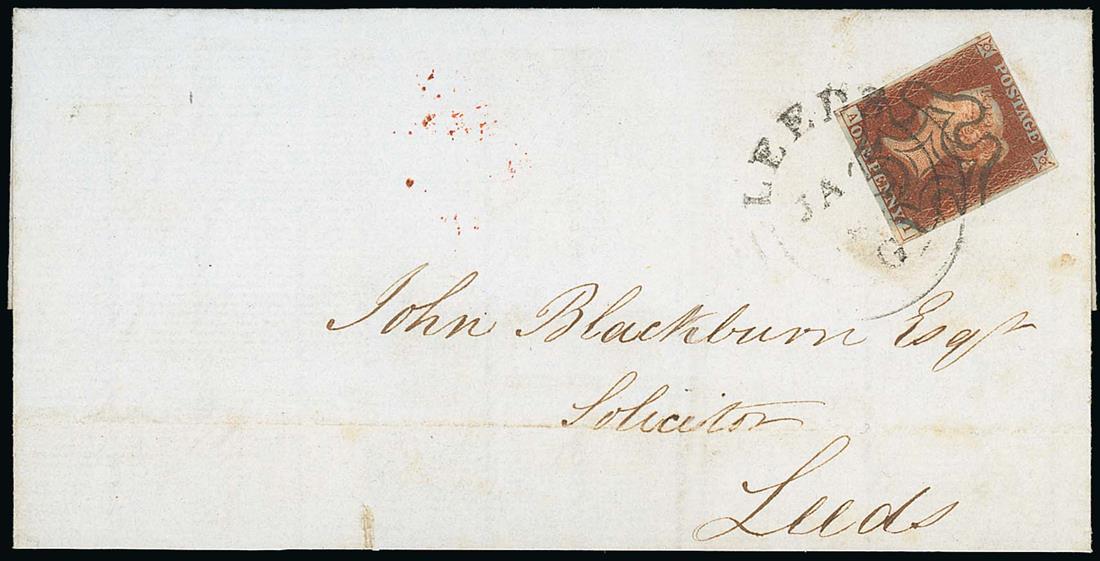 LEEDS
JA
POSTAGE
A ONE PENNY
John Blackburn Esqr
Solicitor
Leeds